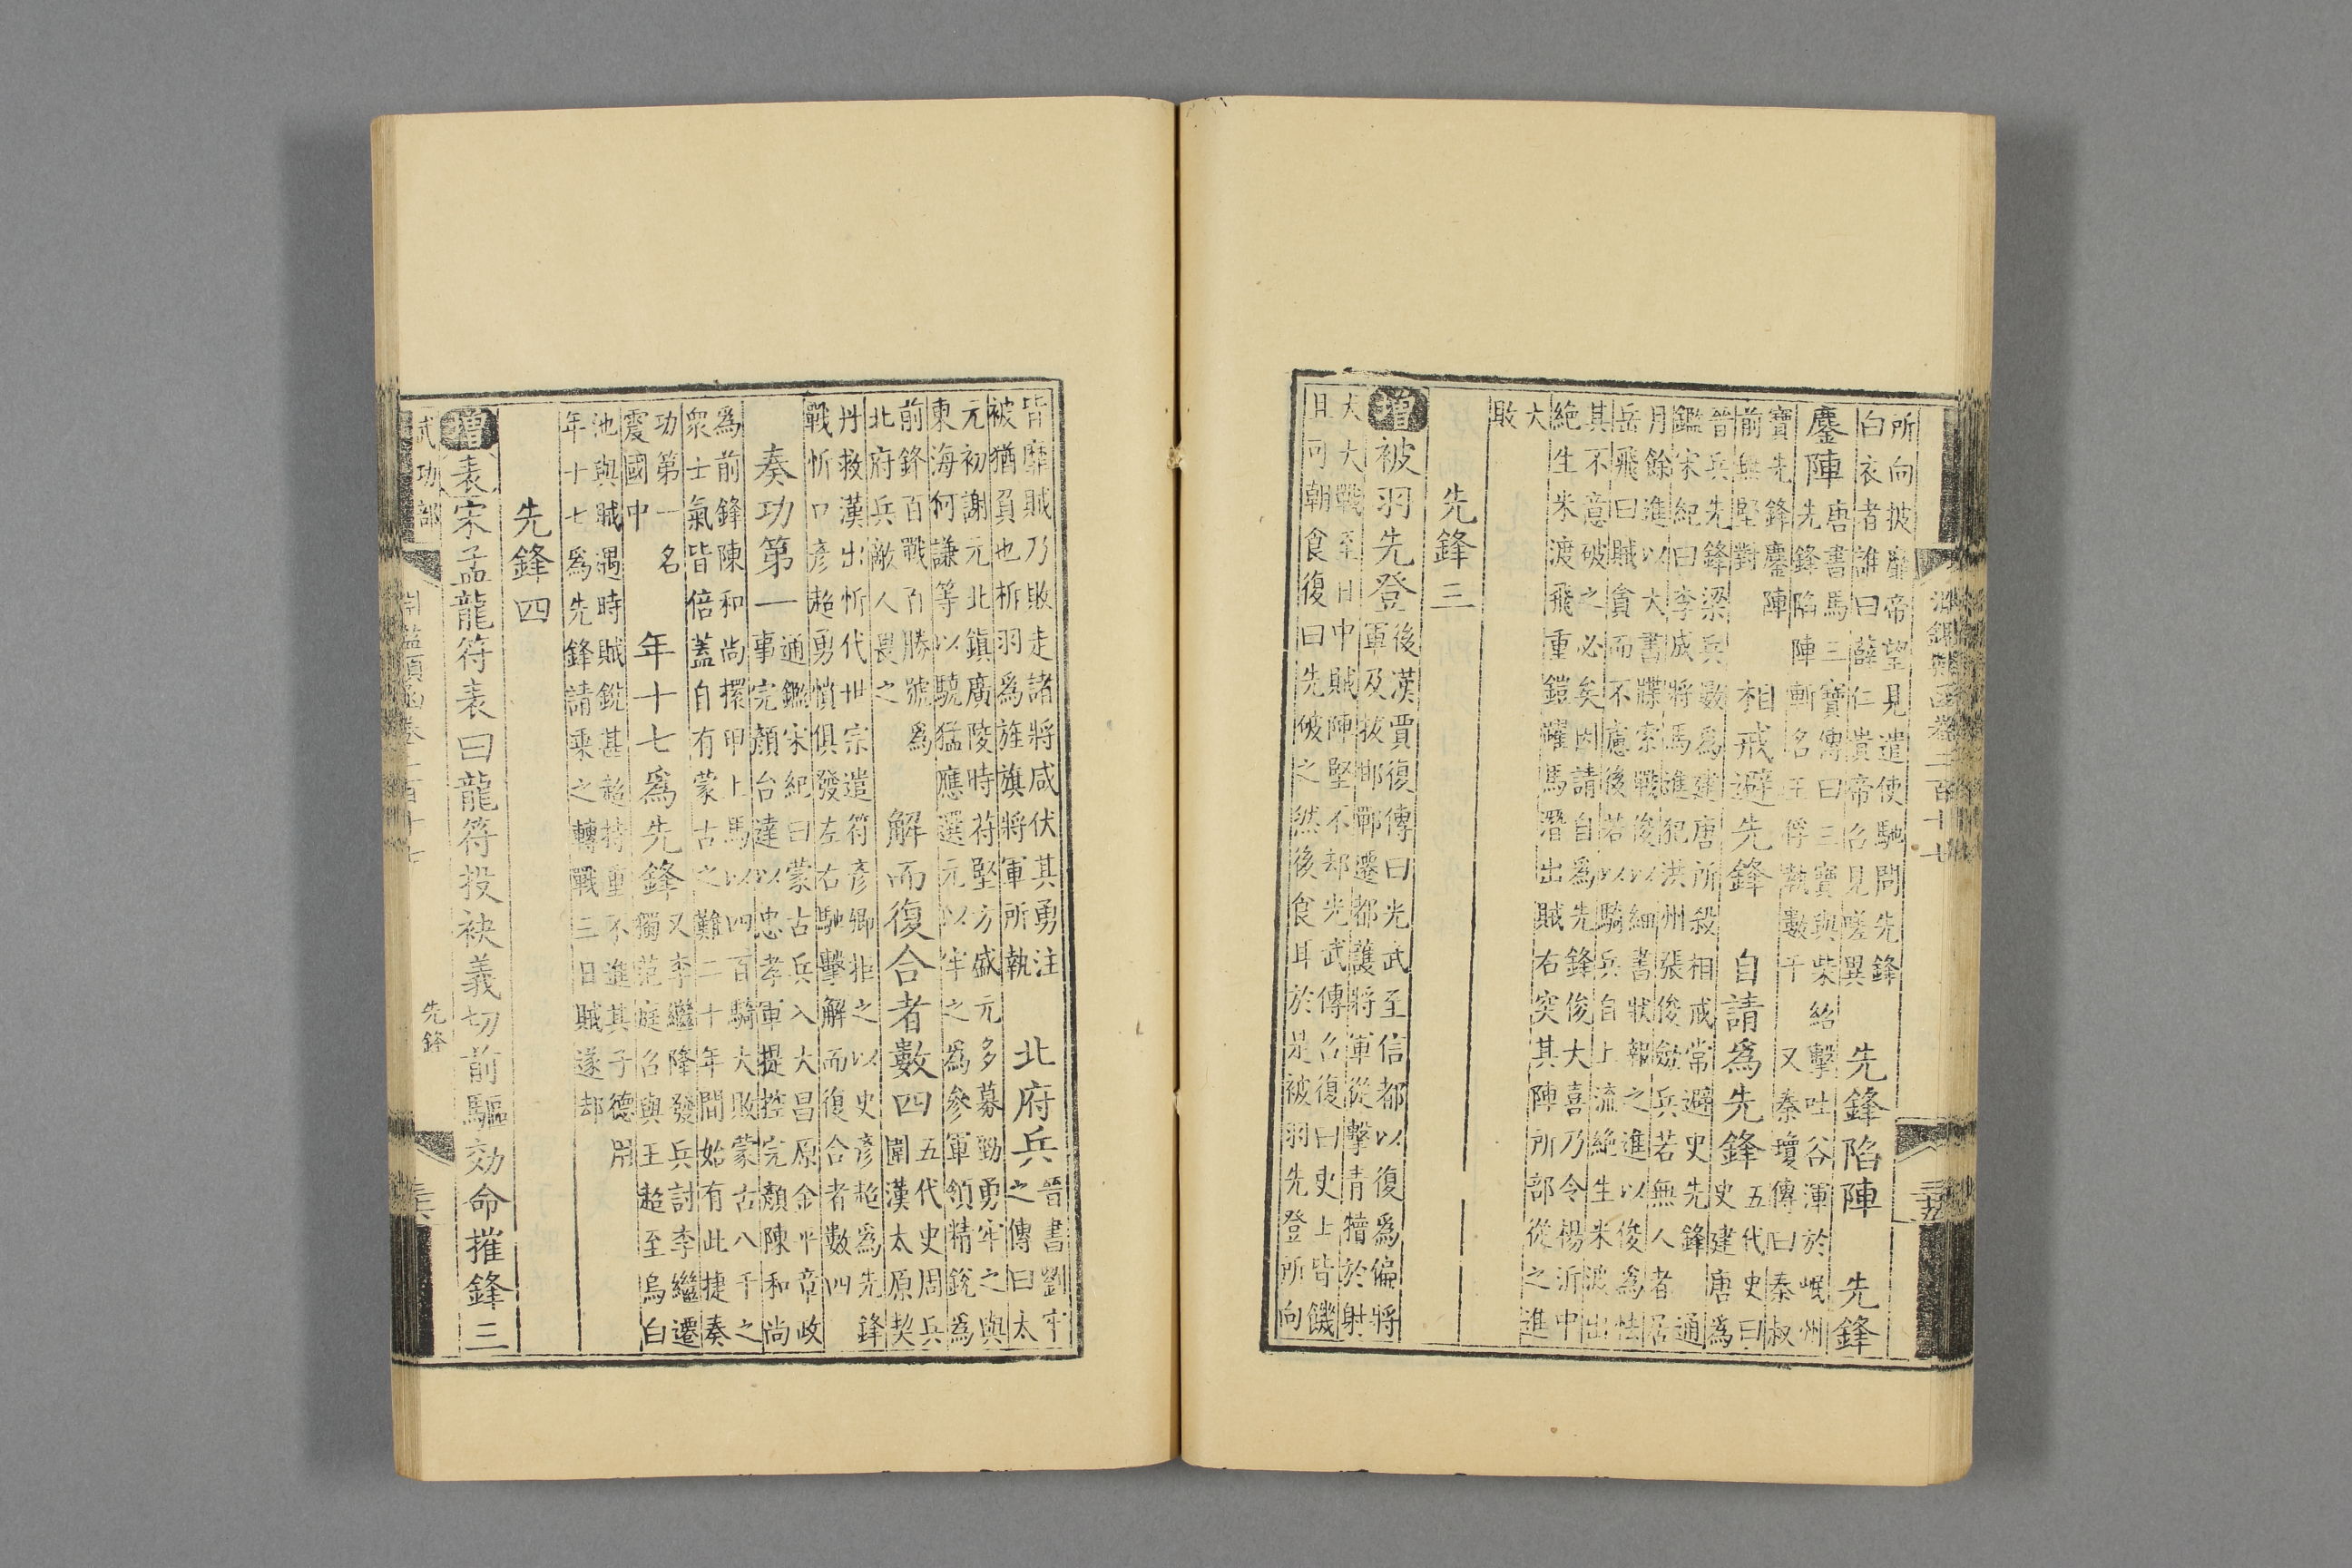 淵鑑類函卷二百十七
所向披靡帝望見遣使馳問先鋒
白衣者誰曰薛仁貴帝召見嗟異
先鋒陷陣　先鋒
鏖陣
唐書馬三寶傳曰三寶與柴紹擊吐谷渾於岷州
先鋒陷陣斬名王俘執數千　又秦瓊傳曰秦叔
寶先鋒鏖陣
前無堅對
相戒避先鋒　自請爲先鋒
五代史曰
史建唐爲
晉兵先鋒梁兵數爲建唐所殺相戒常避史先鋒　通
鑑宋紀曰李成將馬進犯洪州張俊斂兵若無人者居
月餘進以大書牒索戰俊以細書狀報之進以俊爲怯
岳飛曰賊貪而不慮後若以騎兵自上流絶生米渡出
其不意破之必矣因請自爲先鋒俊大喜乃令楊沂中
絶生米渡飛重鎧躍馬潛出賊右突其陣所部從之進
大
敗
先鋒三
增被羽先登
後漢賈復傳曰光武至信都以復爲偏將
軍及拔邯鄲遷都護將軍從擊青犢於射
大大戰至日中賊陣堅不却光武傳召復曰史上皆饑
且可朝食復曰先破之然後食耳於是被羽先登所向
皆靡賊乃敗走諸將咸伏其勇注
被猶負也析羽爲旌旗將軍所執
北府兵
晉書劉牢
之傳曰太
元初謝元北鎮廣陵時苻堅方盛元多募勁勇牢之與
東海何謙等以驍猛應選元以牢之爲參軍領精銳爲
前鋒百戰百勝號爲
北府兵敵人畏之
解而復合者數四
五代史周兵
圍漢太原契
丹救漢出忻代世宗遣符彦卿拒之以史彦超爲先鋒
戰忻口彦超勇憤俱發左右馳擊解而復合者數四
奏功第一
通鑑宋紀曰蒙古兵入大昌原金平章政
事完顏台達以忠孝軍提控完顏陳和尚
爲前鋒陳和尚擐甲上馬以四百騎大敗蒙古八千之
衆士氣皆倍蓋自有蒙古之難二十年間始有此捷奏
功第一名
震國中
年十七爲先鋒
又李繼隆發兵討李繼遷
獨范庭召與王超至烏白
池與賊遇時賊銳甚超持重不進其子德用
年十七爲先鋒請乘之轉戰三日賊遂却
先鋒四
增表宋孟龍符表曰龍符投袂義切前驅効命摧鋒三
武功部　淵鑑類函卷二百十七　先鋒